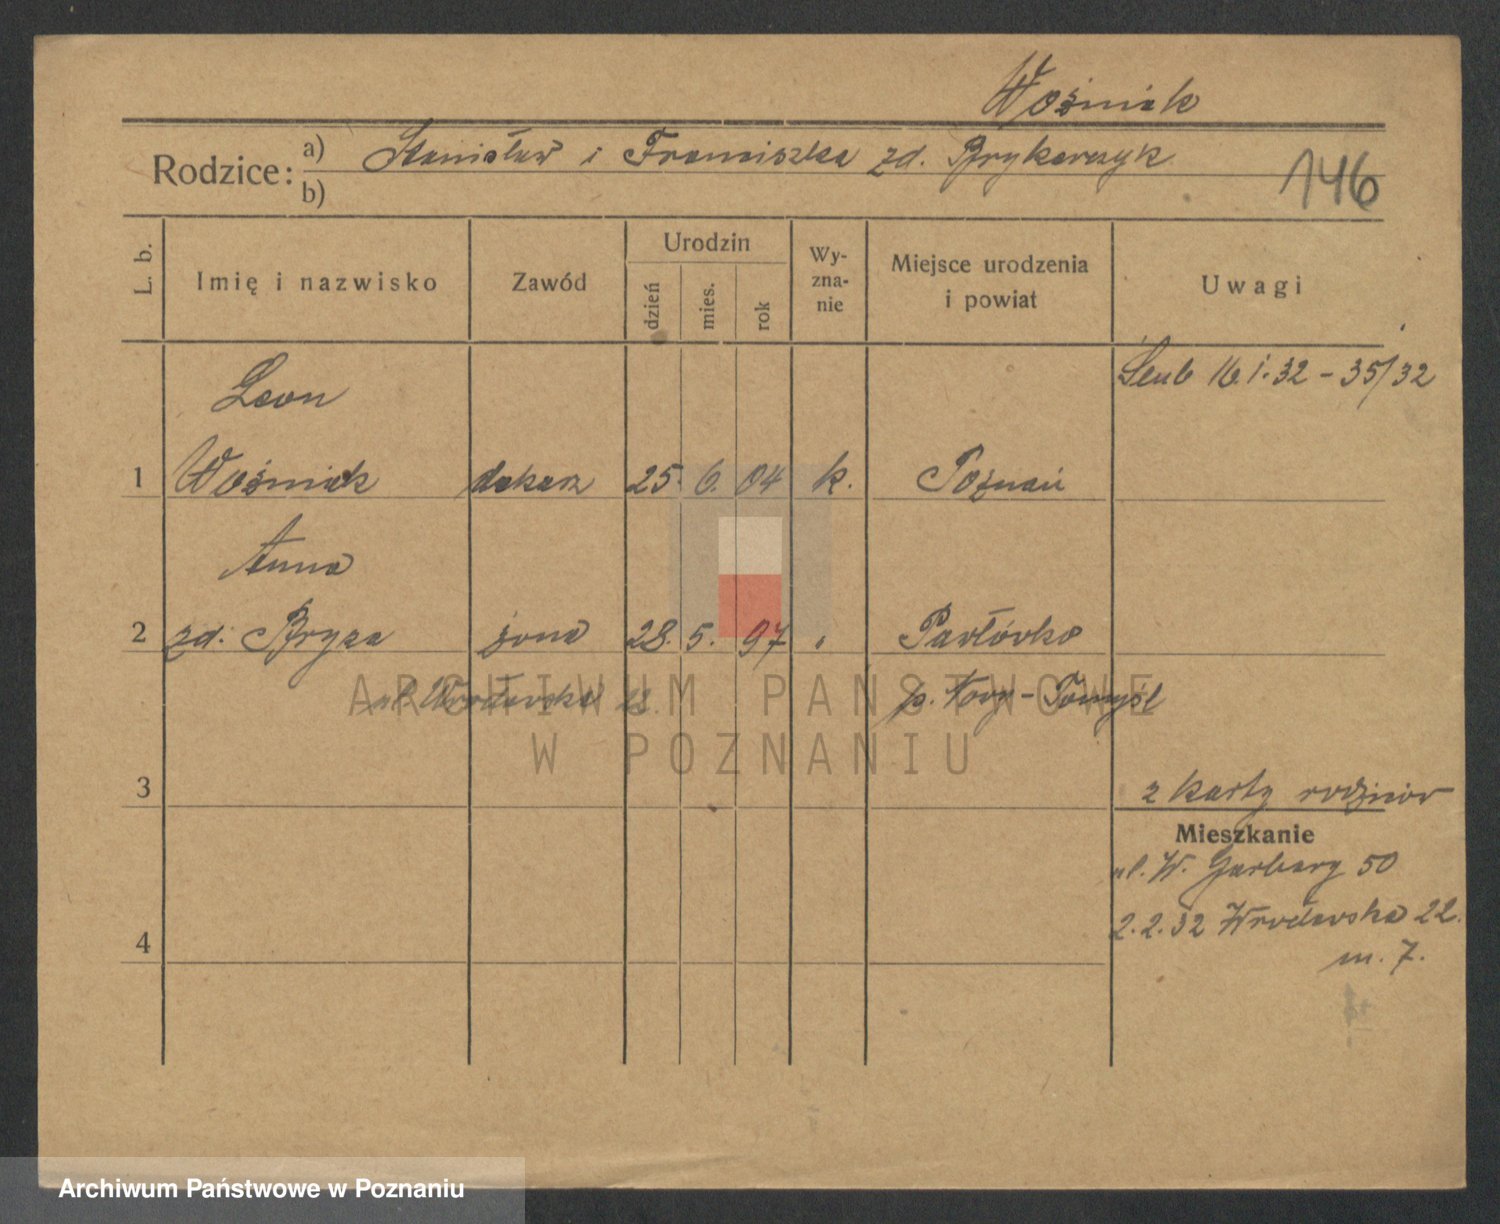 Woźniak
Rodzice: a) Stanisław i Franciszka zd. Brykarczyk
b)
146
L. b. Imię i nazwisko Zawód Urodzin dzień mies. rok Wy-zna-nie Miejsce urodzenia i powiat Uwagi
Ślub 16.1.32 - 35/32
Leon
1 Woźniak dekarz 25. 6. 04 k. Poznań
Anna
2 zd. Bryza żona 28. 5. 97 " Pawłówko
ul. Wrocławska p. Nowy-Tomyśl
ARCHIWUM PAŃSTWOWE
W POZNANIU
3 z karty rodziców
Mieszkanie
ul. W. Garbary 50
2.2.32 Wrocławska 22.
4
m. 7.
Archiwum Państwowe w Poznaniu